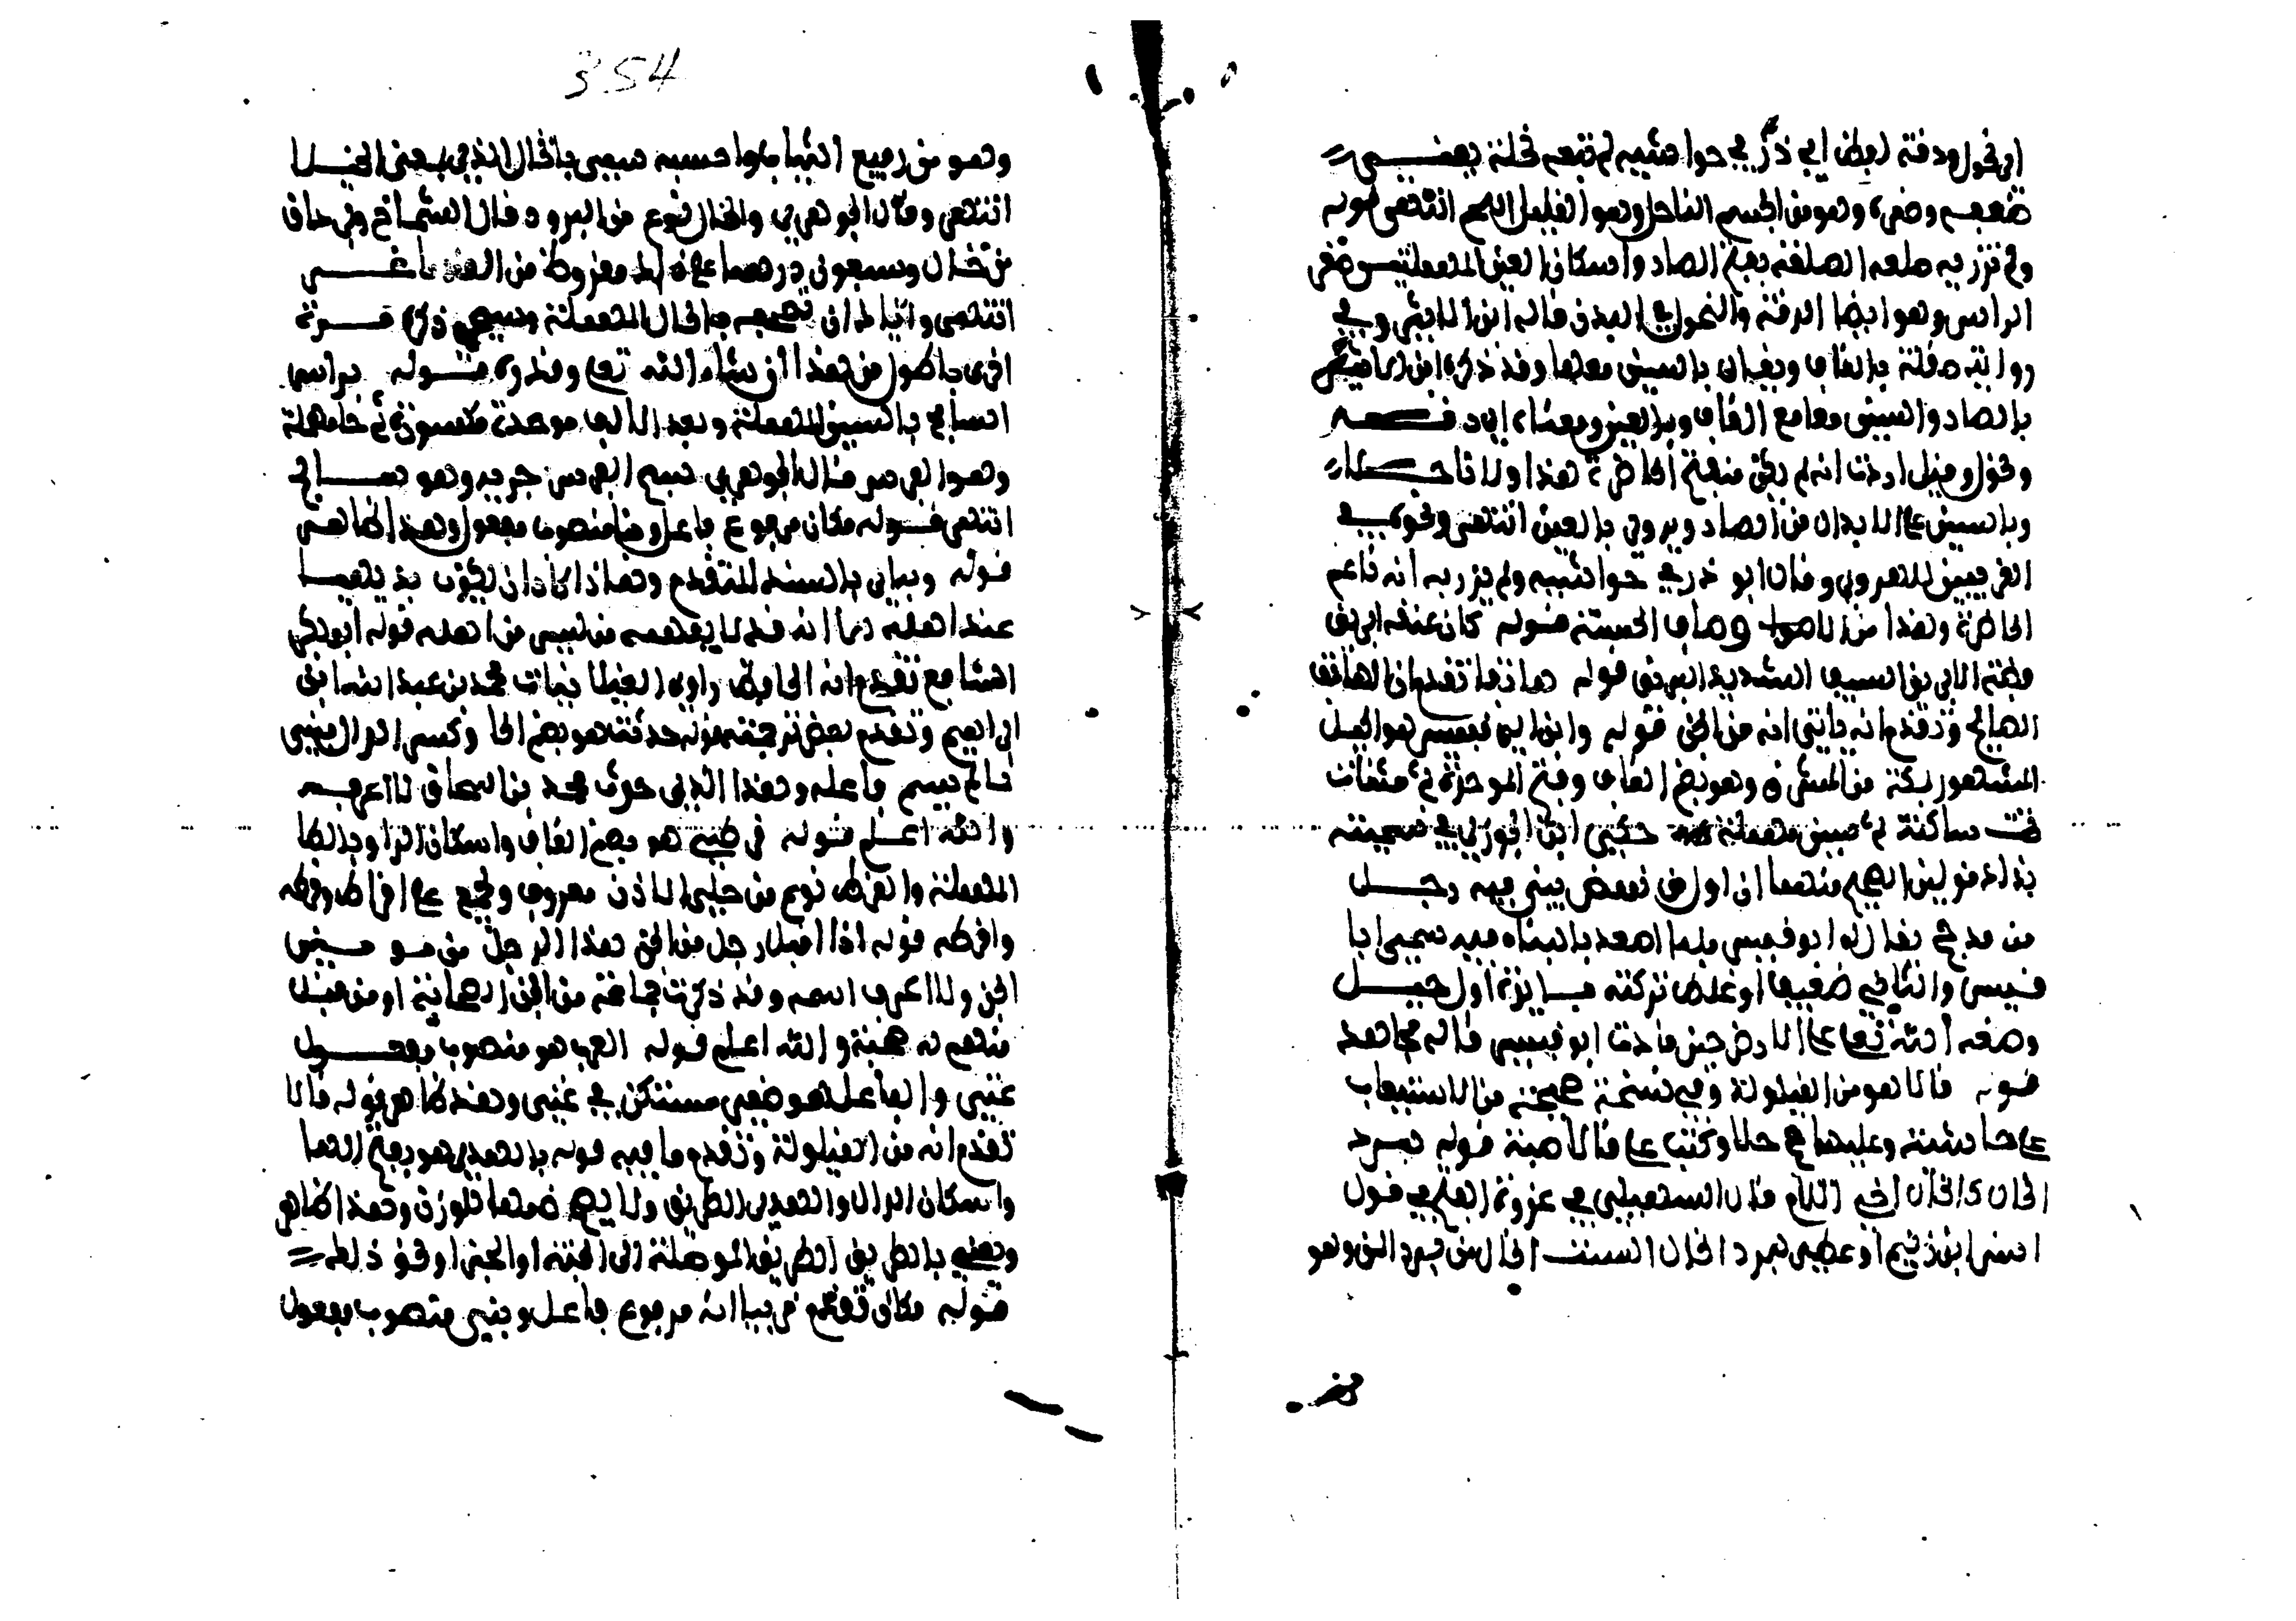 اي نحول ودقة ولفظ ابي ذر في حواشيه لم تعبه نحلة يعني
ضعفه وضمره وهو من الجسم الناحل وهو القليل اللحم انتهى قوله
ولم تزر به صعلة الصعلة بفتح الصاد واسكان العين المهملتين صغر
الراس وهو ايضا الدقة والنحول في البدن قاله ابن الاثير وفي
رواية صقلة بالقاف ويقال بالسين معها وقد ذكره ابن الاثير
بالصاد والسين معا مع القاف وبالعين ومعناه اي دقة
ونحول وقيل اردت انه لم يكن منتفخ الخاصرة هذا ولا ناحلا
وبالسين على الابدال من الصاد ويروى بالعين انتهى ونحوه في
الغريبين للهروي وقال ابو ذر في حواشيه ولم تزر به انه ناعم
الخاصرة وهذا من الاوصاف الحسنة قوله كان عنقه ابريق
فضة الابريق السيف الشديد البريق قوله هاتفا تقدم ان الهاتف
الصايح وتقدم انه ياتي انه من الجن قوله وابو قبيس هو الجبل
المشهور بمكة من المشرق وهو بضم القاف وفتح الموحدة ثم مثناة
تحت ساكنة ثم سين مهملة حكى ابن الجوزي في تسميته
بذلك قولين الصحيح منهما ان اول من نهض يبني فيه رجل
من مذحج يقال له ابو قبيس فلما صعد بالبناء فيه سمي ابا
قبيس والثاني ضعيف او غلط تركته فايدة اول جبل
وضعه الله تعالى على الارض حين مادت ابو قبيس قاله مجاهد
قوله قالا هو من القيلولة وفي نسخة صحيحة من الاستيعاب
على حاشيته وعليها صح حلا وكتب على قالا صبة قوله ببرد
الخال الخال الخ اللام قال السهيلي في غزوة الفتح في قول
انس ابن زنيم واعطى لبرد الخال السنف الخال من برد اليمن وهو
354
وهو من رفيع الثياب واحسبه سمي بالخال الذي بمعنى الخيلا
انتهى وقال الجوهري والخال نوع من البرود قال الشماخ وبردان
من خال وسبعون درهما على ذاك مقروظ من القد ماعز
انتهى واياك ان تصحفه بالحال المهملة وسيجي ذكره مرة
اخرى باطول من هذا ان شاء الله تعالى وقدره قوله فراس
السابح بالسين المهملة وبعد الالف موحدة مكسورة ثم حا مهملة
وهو الفرس قال الجوهري سبح الفرس جريه وهو سابح
انتهى قوله مكان مرفوع فاعل وهنا منصوب مفعول وهذا ظاهر
قوله وبالسند المتقدم وهذا كاد ان يكون بديهيا
عند اهله الا انه قد لا يفهمه من ليس من اهله قوله ابو بكر
الشافعي تقدم انه الحافظ راوي الغيلانيات محمد بن عبد الله ابن
ابراهيم وتقدم بعض ترجمته قوله حدثت هو بضم الحا وكسر الدال مبني
لما لم يسم فاعله وهذا الذي حدث محمد بن اسحاق لا اعرفه
والله اعلم قوله قرطها هو بضم القاف واسكان الرا وبالطا
المهملة والقرط نوع من حلي الاذن معروف ويجمع على اقراط وقرطة
واقرطة قوله اذا اقبل رجل من الجن هذا الرجل من مومنين
الجن ولا اعرف اسمه وقد ذكرت جماعة من الجن الصحابة او من قيل
منهم له صحبة والله اعلم قوله العرب هو منصوب مفعول
غنى والفاعل هو ضمير مستتكن في غنى وهذا ظاهر قوله قالا
تقدم انه من القيلولة وتقدم ما فيه قوله بالهدي هو بفتح الها
واسكان الدال والهدي الطريق ولا يصح ضمها للوزن وهذا ظاهر
ويعني بالطريق الطريق الموصلة الى الجنة او الخير او نحو ذلك
قوله مكان تقدم قريبا انه مرفوع فاعل وبني منصوب مفعول